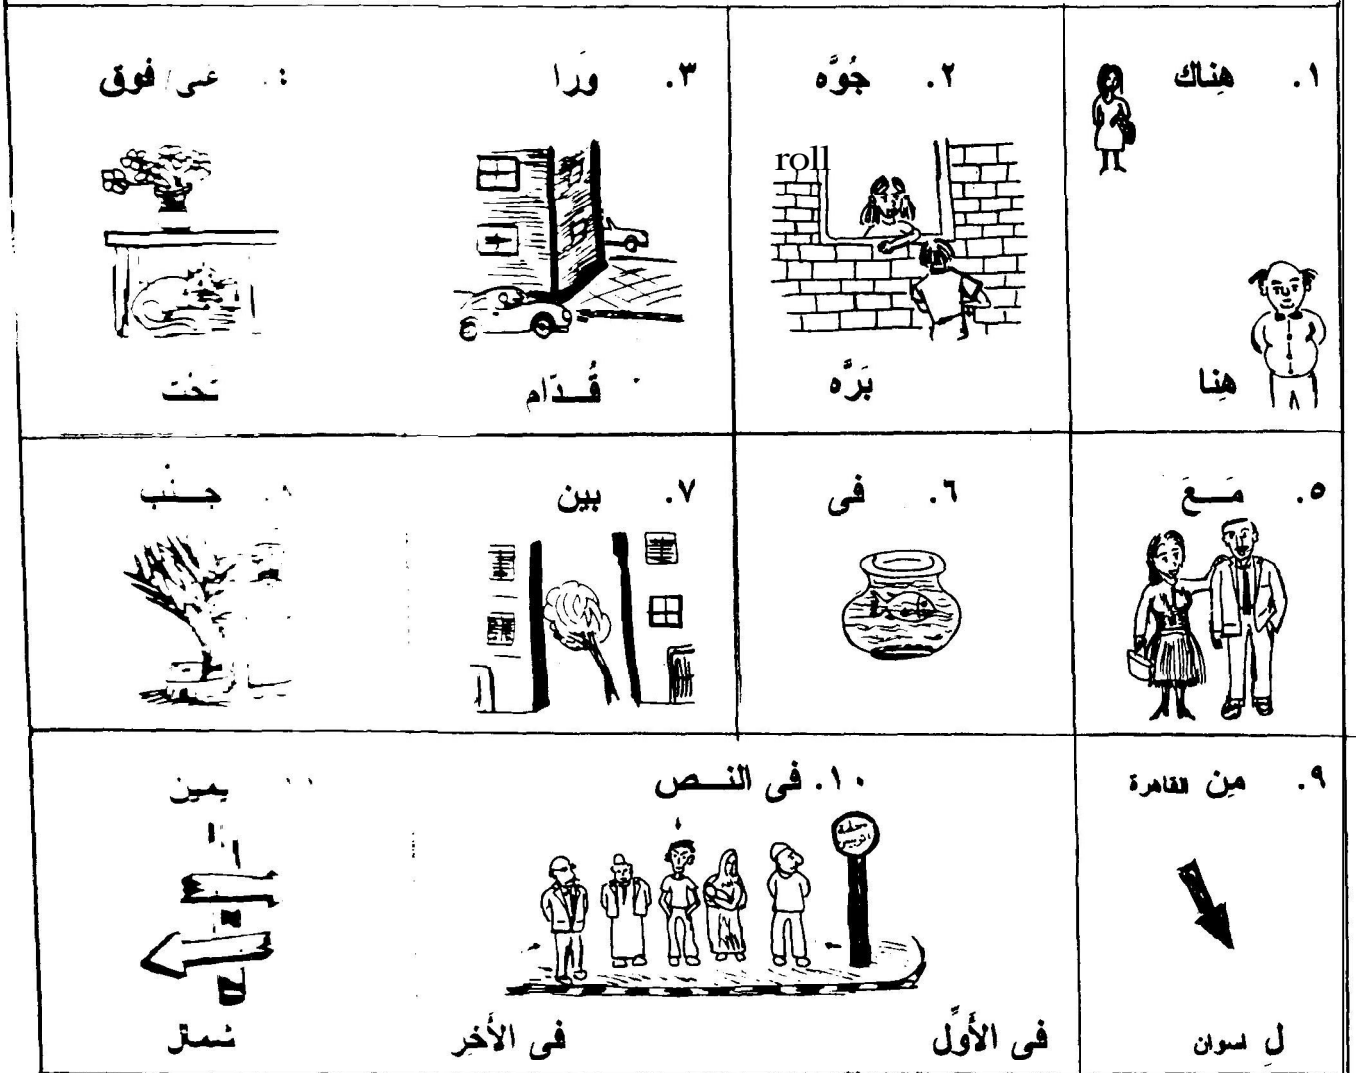 ١. هِناك
هِنا
٢. جُوَّه
roll
بَرَّه
٣. وَرا
قُــدَّام
/ فوق
تَحْت
٥. مَــعَ
٦. فى
٧. بين
جــنْب
٩. مِن القاهرة
لِ اسوان
١٠. فى النــص
محطة
فى الأَوِّل
فى الأَخِر
يمين
شمال